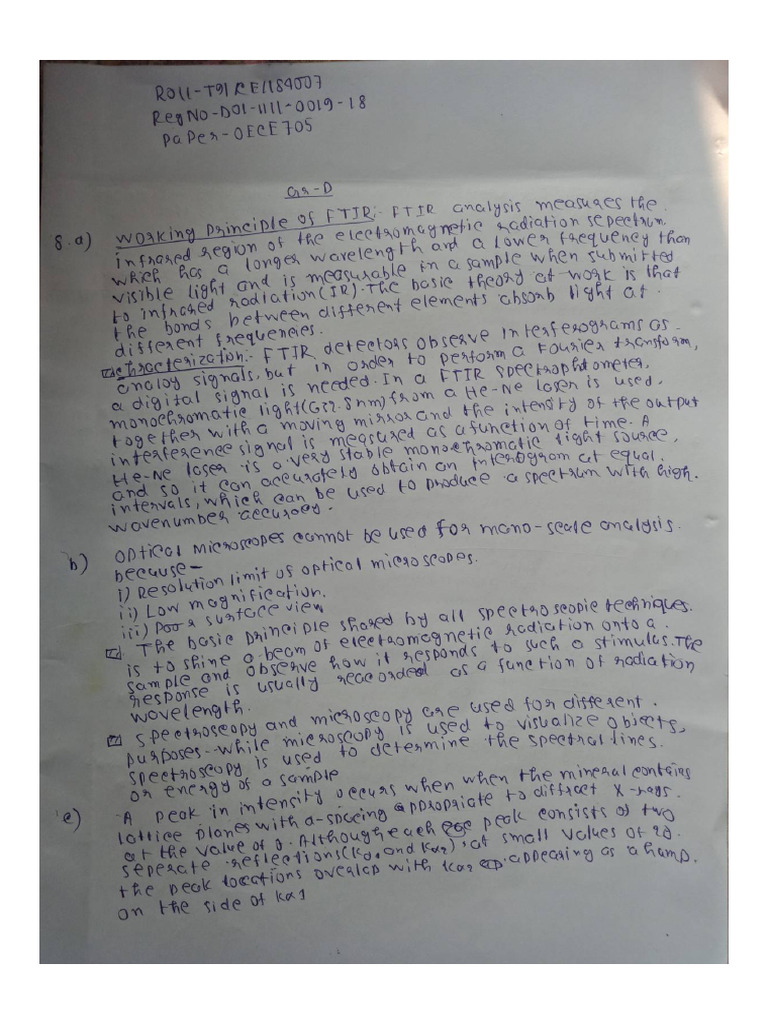 Roll-T91/ECE/184007
RegNO-D01-1111-0019-18
PaPer-OECE705
Gr-D
8.a) Working principle of FTIR:- FTIR analysis measures the
infrared region of the electromagnetic radiation sepectrum
which has a longer wavelength and a lower frequency than
visible light and is measurable in a sample when submitted
to infrared radiation(IR).The basic theory at work is that
the bonds between different elements absorb light at
different frequencies.
chracterization:- FTIR detectors observe interferograms as
analoy signals, but in order to perform a Fourier transform,
a digital signal is needed. In a FTIR spectrophtometer,
monochromatic light(632.8nm) from a He-Ne laser is used,
together with a moving mirror and the intensity of the output
interference signal is measured as a function of time. A
He-Ne laser is a very stable monochromatic light source,
and so it can accurately obtain an interogram at equal
intervals, which can be used to produce a spectrum with high
wavenumber accuracy.
b) optical microscopes cannot be used for mono-scale analysis
because-
i) Resolution limit of optical microscopes.
ii) Low magnification.
iii) Poor surface view
The basic principle shared by all spectroscopic techniques
is to shine a beam of electromagnetic radiation onto a
sample and observe how it responds to such a stimulus.The
response is usually recorded as a function of radiation
wavelength.
Spectroscopy and microscopy are used for different
purposes- while microscopy is used to visualize objects,
spectroscopy is used to determine the spectral lines
or energy of a sample
e) A peak in intensity occurs when when the mineral contains
lattice planes with d-spacing appropriate to diffract X-rays
at the value of θ. Although each peak consists of two
seperate reflections(Kα1 and Kα2), at small values of 2θ
the peak locations overlap with Kα2 appearing as a hamp
on the side of Kα1